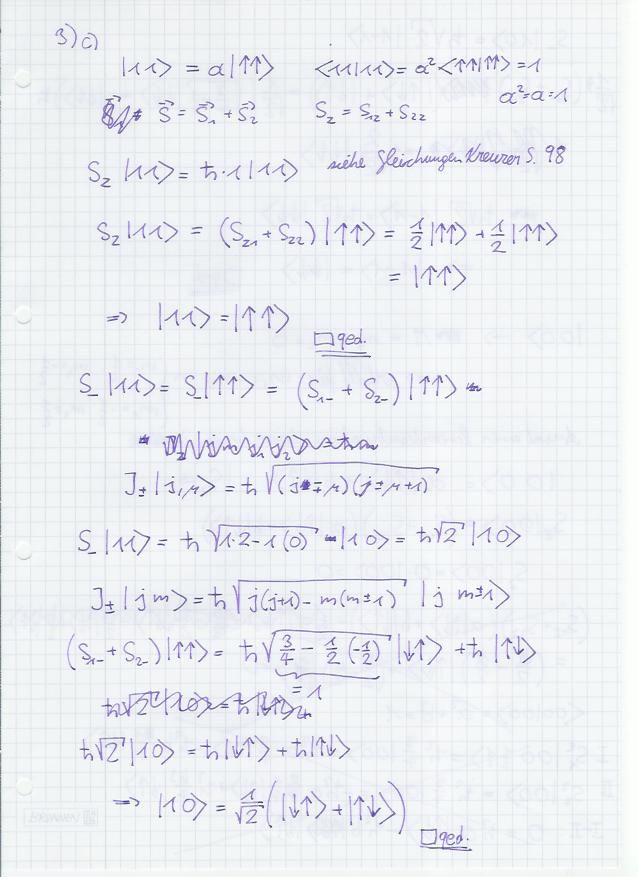 3) c)
|11> = a|↑↑>   <11|11> = a²<↑↑|↑↑> = 1
a² = a = 1
S⃗ = S⃗₁ + S⃗₂   S_z = S_{1z} + S_{2z}
S_z |11> = ħ·1|11>   siehe Gleichungen S. 98
S_z |11> = (S_{z1} + S_{z2})|↑↑> = 1/2|↑↑> + 1/2|↑↑>
= |↑↑>
⇒ |11> = |↑↑>
□ qed.
S_- |11> = S_-|↑↑> = (S_{1-} + S_{2-})|↑↑>
J_± |j,μ> = ħ √((j∓μ)(j±μ+1))
S_- |11> = ħ √(1·2-1(0)) |10> = ħ√2 |10>
J_± |j m> = ħ √(j(j+1) - m(m±1)) |j m±1>
(S_{1-} + S_{2-})|↑↑> = ħ √(3/4 - 1/2(-1/2)) |↓↑> + ħ |↑↓>
= 1
ħ√2 |10> = ħ|↓↑> + ħ|↑↓>
⇒ |10> = 1/√2 (|↓↑> + |↑↓>)
□ qed.